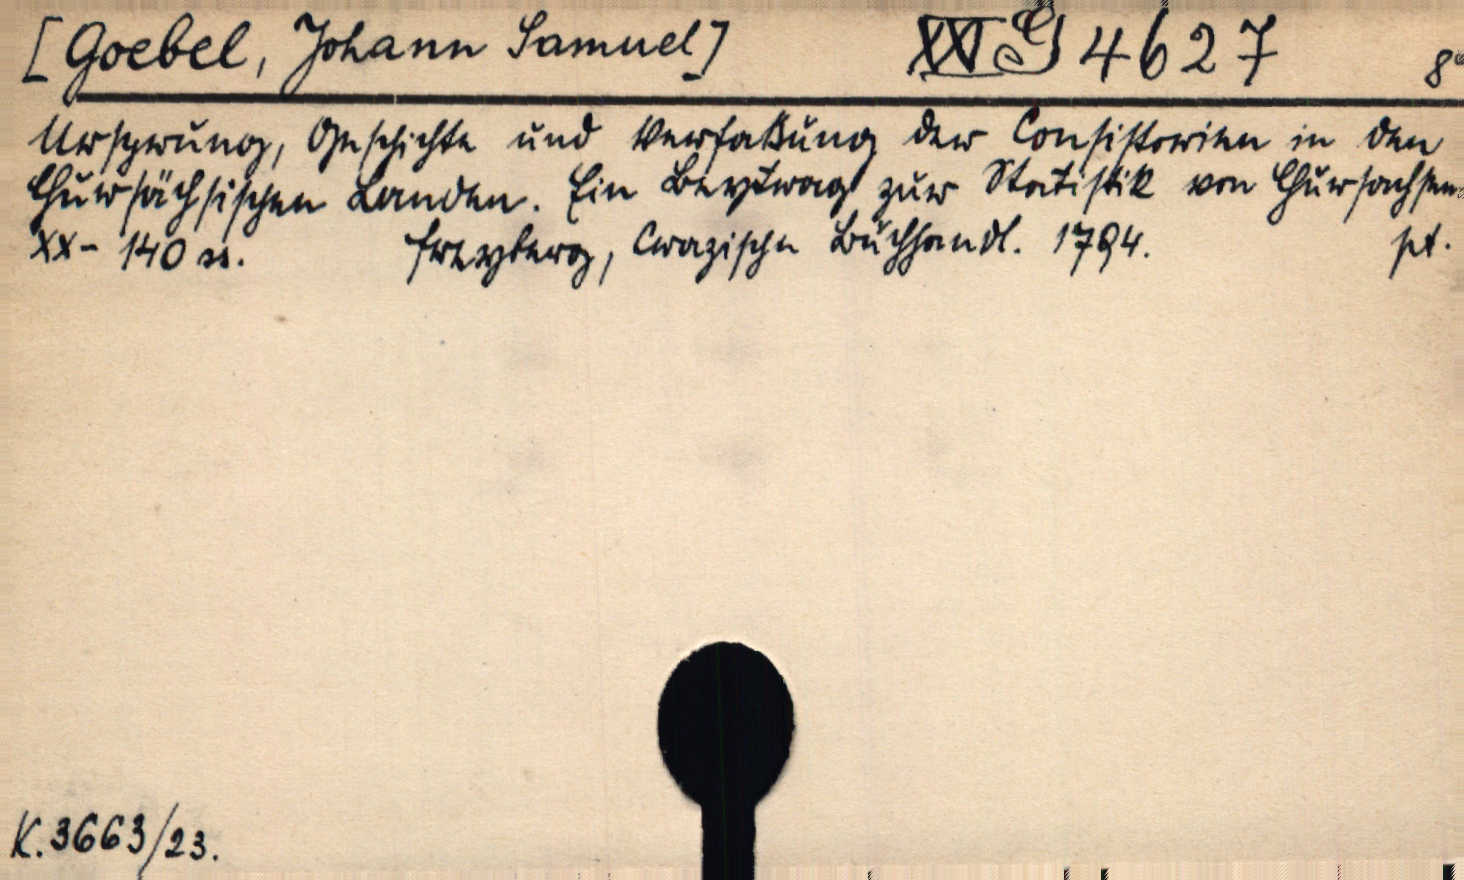 [Goebel, Johann Samuel] XVI G 4627 8°
Ursprung, Geschichte und Verfaßung der Consistorien in den
Chursächsischen Landen. Ein Beytrag zur Statistik von Chursachsen.
XX - 140 ss. Freyberg, Crazische Buchhandl. 1794. pt.
K. 3663/23.